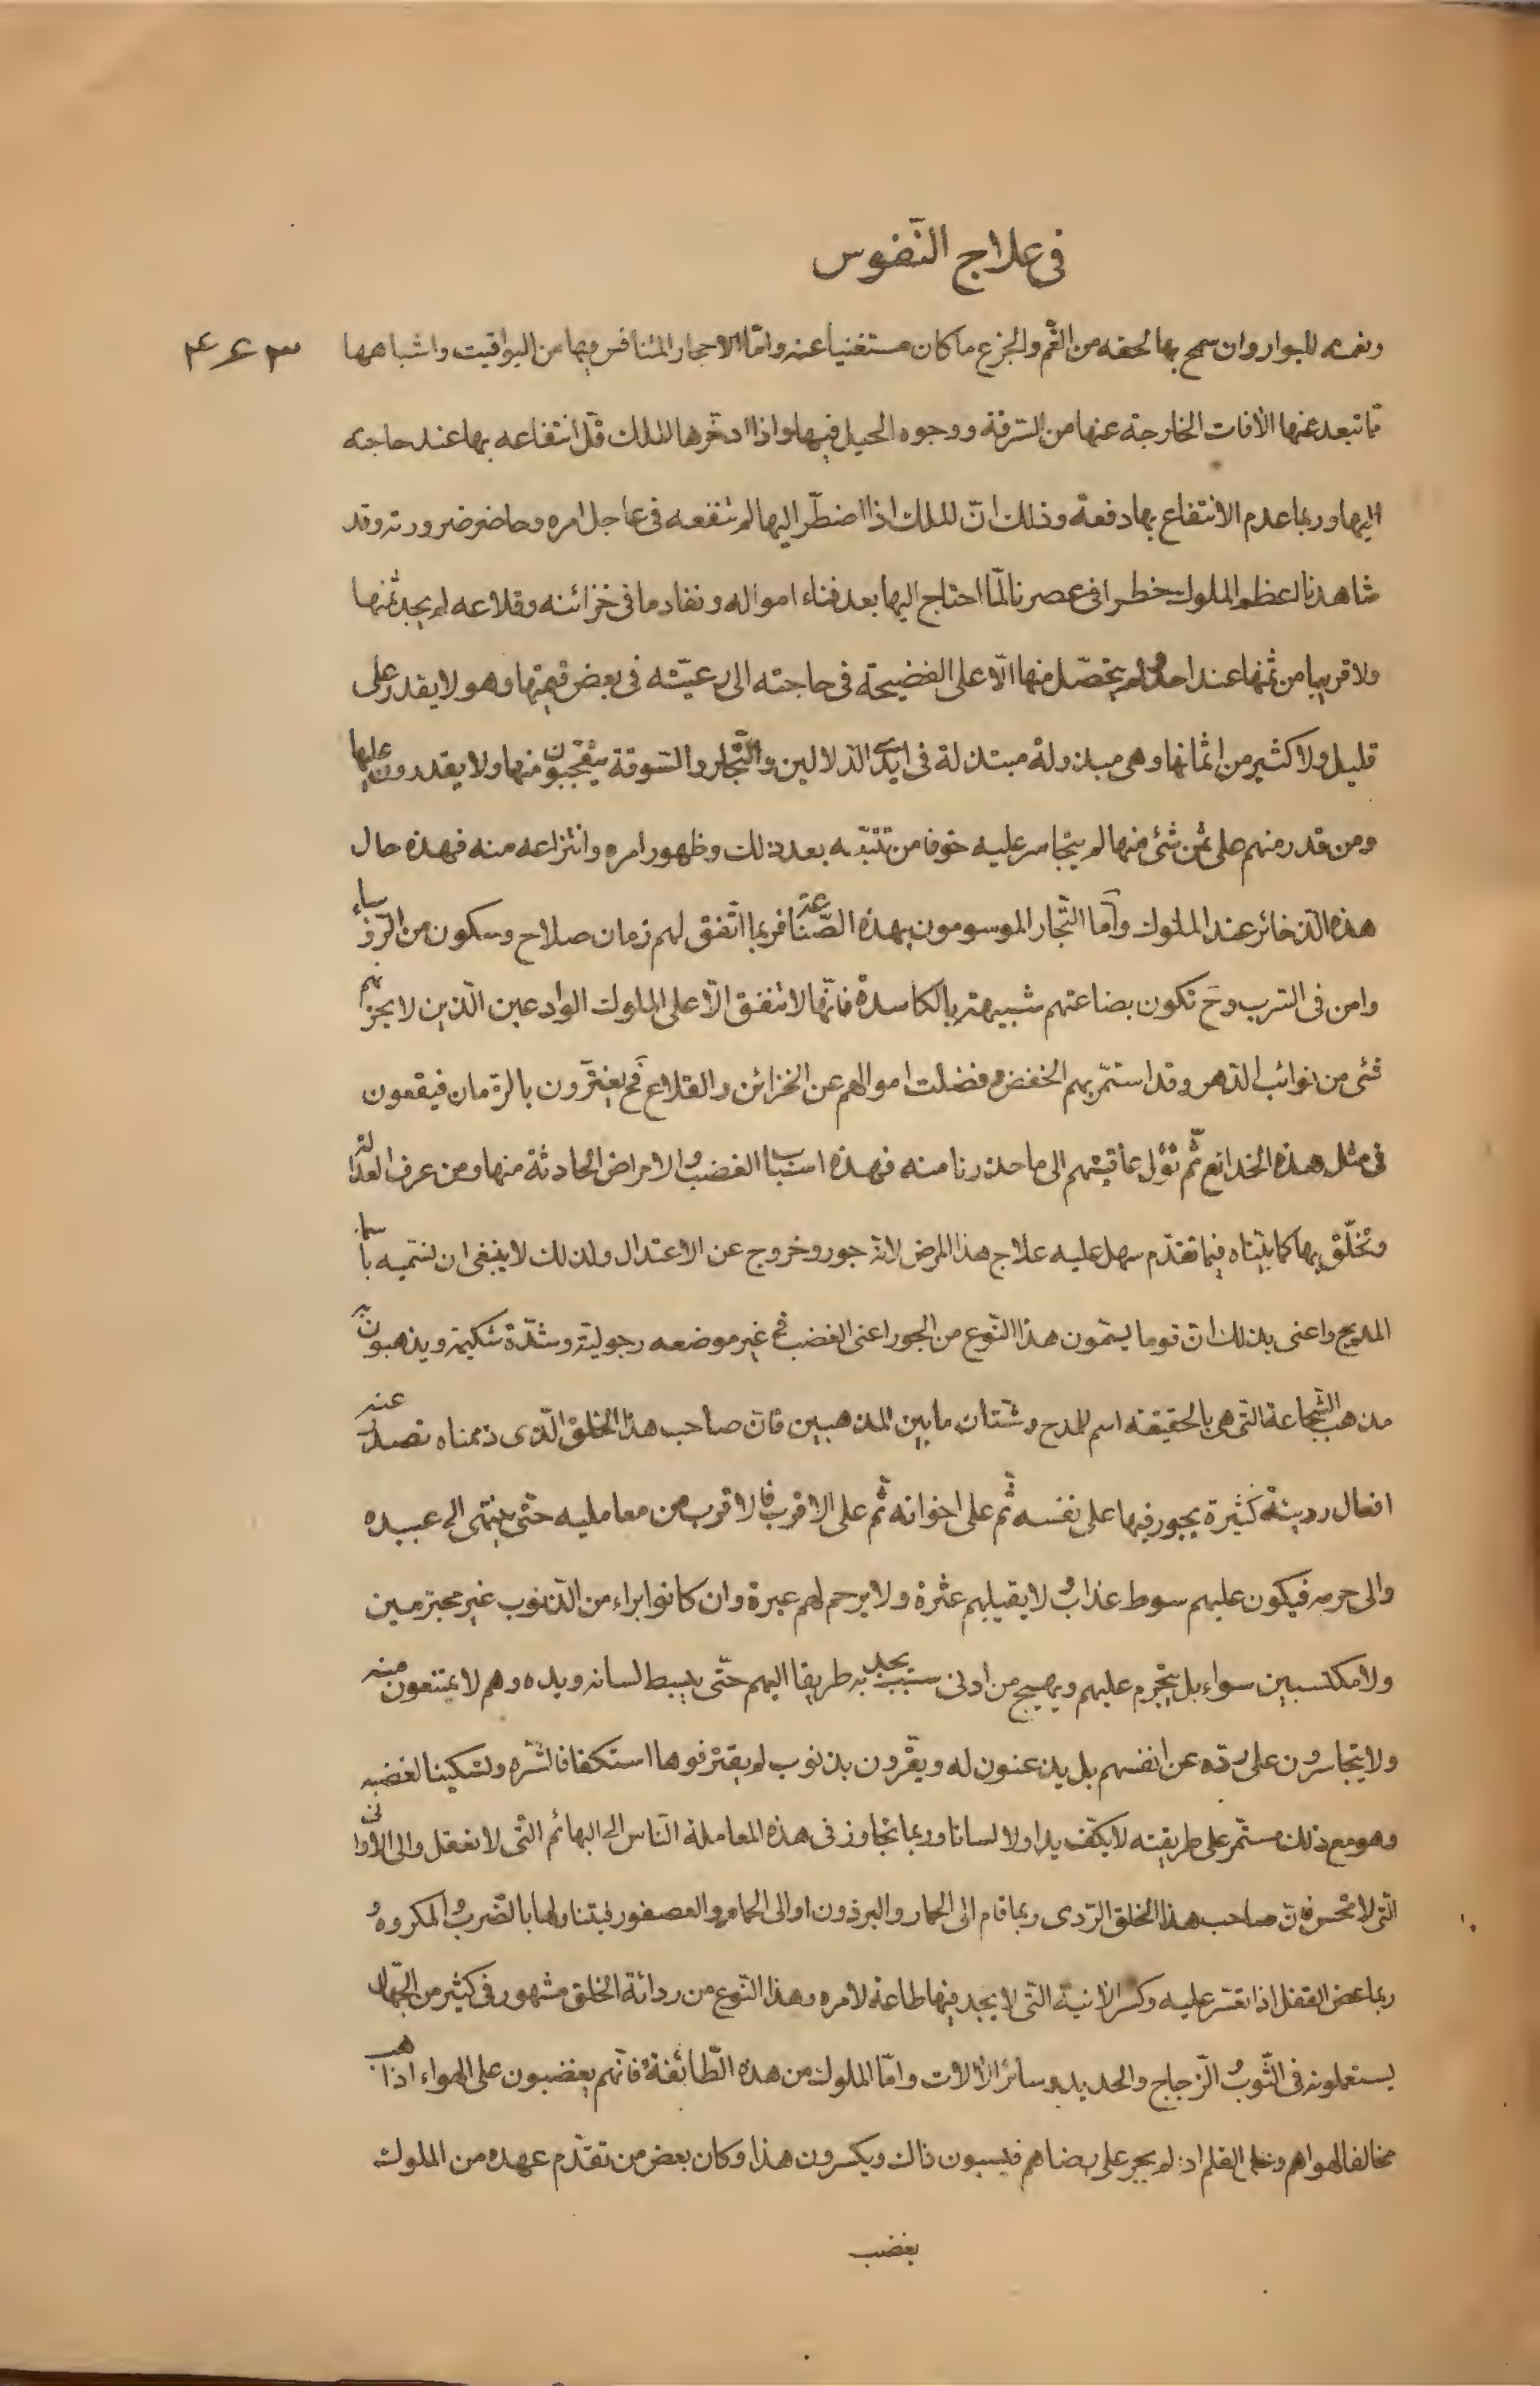 فى علاج النّفوس
وتعرضه للبوار وان سمح بها لحقه من الغّم والجزع ما كان مستغنيا عنه وامّا الاحجار المتنافس فيها من اليواقيت واشباهها
ممّا تبعد عنها الأفات الخارجة عنها من السّرقة ووجوه الحيل فيها واذا ادخّرها الملك قلّ انتفاعه بها عند حاجته
اليها وربما عدم الانتفاع بها دفعة وذلك انّ الملك اذا اضطّر اليها لم تنفعه فى عاجل امره وحاضر ضرورته وقد
شاهدنا اعظم الملوك خطرا فى عصرنا لمّا احتاج اليها بعد فناء امواله ونفاد ما فى خزائنه وقلاعه لم يجد ثمنها
ولا قريبا من ثمنها عند احد ولم يتحصّل منها الّا على الفضيحة فى حاجته الى رعيّته فى بعض قيمتها وهو لا يقدر على
قليل ولا كثير من اثمانها وهى مبذولة مبتذلة فى ايدى الدّلالين والتّجار والسّوقة يتعجّبون منها ولا يقدرون عليها
ومن قدر منهم على ثمن شئ منها لم يتجاسر عليه خوفا من تتبّعه بعد ذلك وظهور امره وانتزاعه منه فهذه حال
هذه الذّخائر عند الملوك وأمّا التّجار الموسومون بهذه الصّناعة فربما اتّفق لهم زمان صلاح وسكون من الرّؤساء
وامن فى السّرب وحَ تكون بضاعتهم شبيهة بالكاسدة فانّها لا تنفق الّا على الملوك الوادعين الّذين لا يحزنهم
شئ من نوائب الدّهر وقد استمّر بهم الخفض وفضلت اموالهم عن الخزائن والقلاع فحَ يغترّون بالزّمان فيقعون
فى مثل هذه الخدائع ثمّ تؤل عاقبتهم الى ما حذرنا منه فهذه اسباب الغضب والامراض الحادثة منها ومن عرف العدالة
وتخلّق بها كما بيّناه فيما تقدّم سهل عليه علاج هذا المرض لانّه جور وخروج عن الاعتدال ولذلك لا ينبغى ان نسّميه باسماء
المديح واعنى بذلك انّ قوما يسمّون هذا النّوع من الجور اعنى الغضب فى غير موضعه رجوليّة وشدّة شكيمة ويذهبون به
مذهب الشّجاعة التّى هى بالحقيقة اسم للمدح وشتّان ما بين المذهبين فانّ صاحب هذا الخلق الّذى ذممناه تصدر عنه
افعال رديئة كثيرة يجور فيها على نفسه ثّم على اخوانه ثّم على الاقرب فالاقرب من معامليه حتّى ينتهى الى عبيده
والى حرمه فيكون عليهم سوط عذاب ولا يقيلهم عثرة ولا يرحم لهم عبرة وان كانوا براء من الذّنوب غير مجترمين
ولا مكتسبين سواء بل يتجّرم عليهم ويهيج من ادنى سبب يجد به طريقا اليهم حتّى يبسط لسانه ويده وهم لا يمتنعون منه
ولا يتجاسرون على ردّه عن انفسهم بل يذعنون له ويقّرون بذنوب لم يقترفوها استكفافا لشّره وتسكينا لغضبه
وهو مع ذلك مستّمر على طريقته لا يكّف يدا ولا لسانا وربما تجاوز فى هذه المعاملة النّاس الى البهائم الّتى لا تعقل والى الاوانى
الّتى لا تحسّ فانّ صاحب هذا الخلق الرّدى ربما قام الى الحمار والبرذون او الى الحمام والعصفور فيتناولها بالضّرب والمكروه و
ربما عض القفل اذا تعسّر عليه وكسر الانية التّى لا يجد فيها طاعة لامره وهذا النّوع من ردائة الخلق مشهور فى كثير من الجّهال
يستعملونه فى الثّوب والزّجاج والحديد وسائر الألات وامّا الملوك من هذه الطّائفة فانّهم يغضبون على الهواء اذا هب
مخالفا لهواهم وعلى القلم اذا لم يجر على رضاهم فيسبون ذلك ويكسرون هذا وكان بعض من تقدّم عهده من الملوك
يغضب